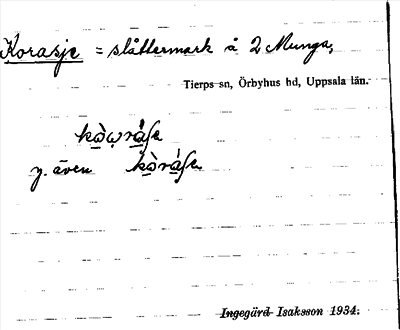 Korasje = slåttermark å 2 Munga,
Tierps sn, Örbyhus hd, Uppsala län.
kòwráʃe
y. även kòráʃe
Ingegärd Isaksson 1934.